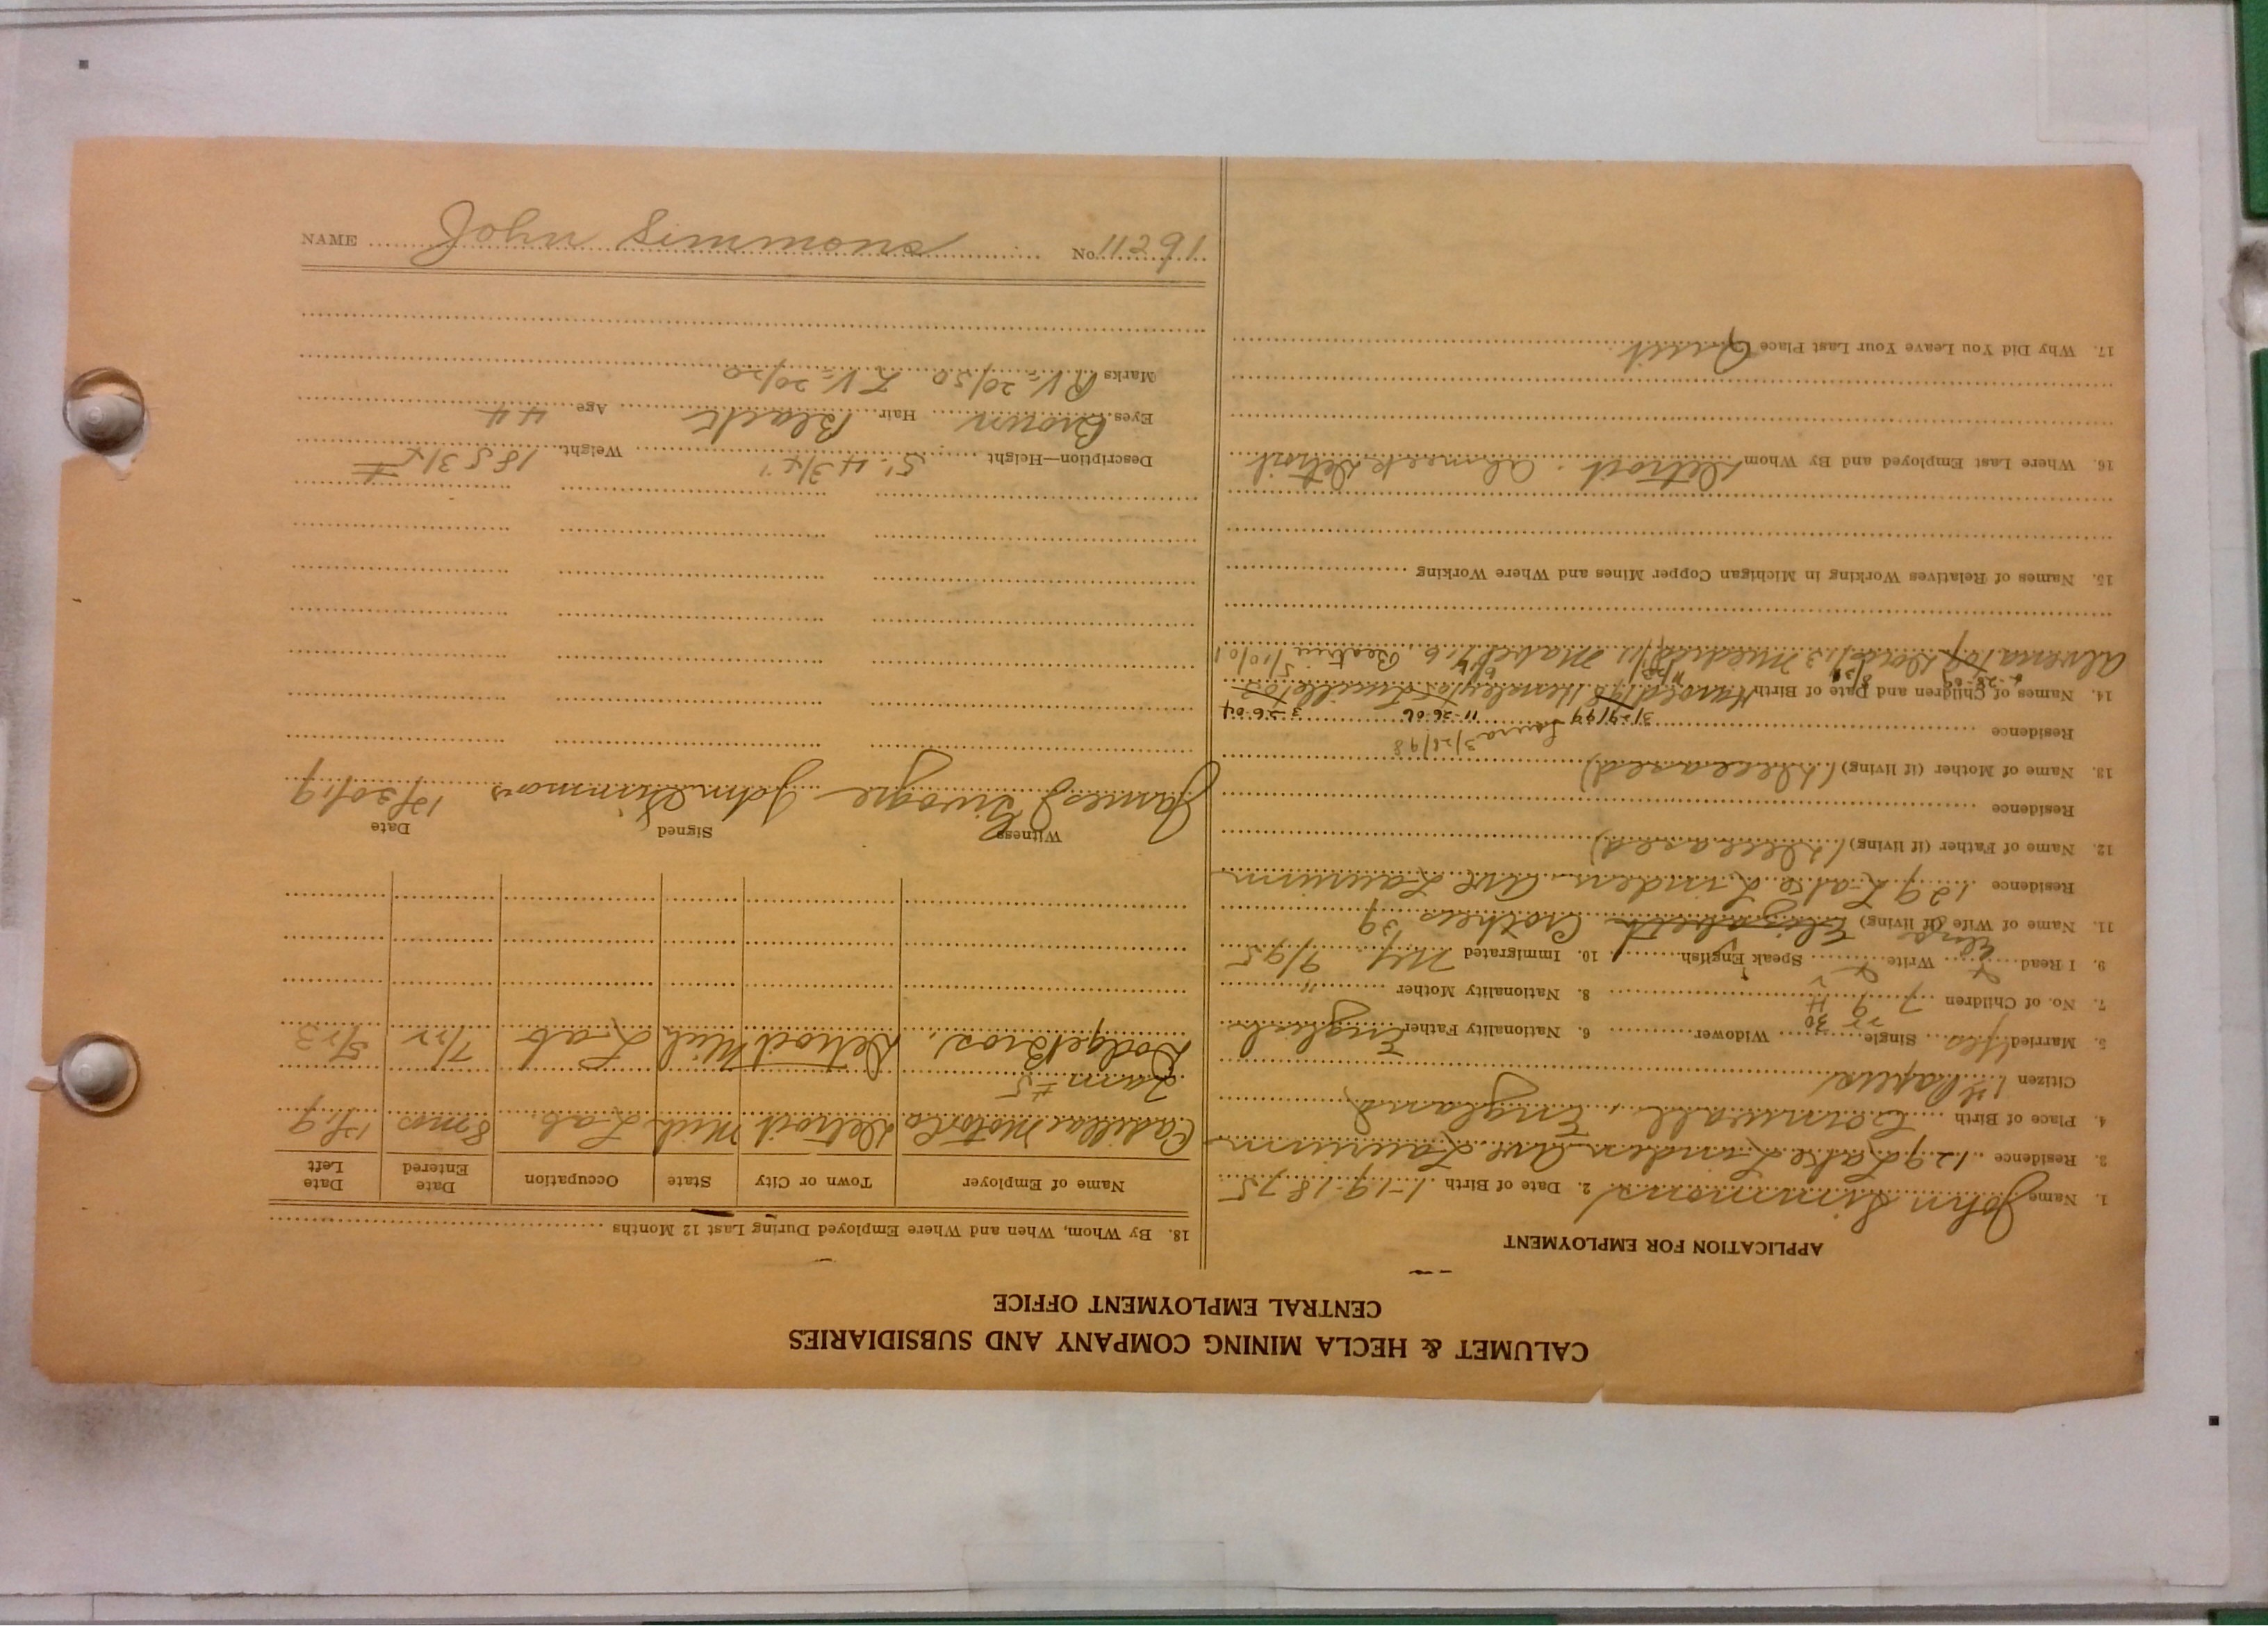 CALUMET & HECLA MINING COMPANY AND SUBSIDIARIES
CENTRAL EMPLOYMENT OFFICE
APPLICATION FOR EMPLOYMENT
1. Name John Simmons 2. Date of Birth 1-19-1875
3. Residence 129 Lake Linden Ave Laurium
4. Place of Birth Cornwall, England
Citizen 1st Papers
5. Married Yes Single Widower 6. Nationality Father English
7. No. of Children 7 9 8. Nationality Mother "
9. I Read Write Speak English 10. Immigrated N.Y. 9/95
11. Name of Wife (if living) Elizabeth 39
Residence 129 Lake Linden Ave Laurium
12. Name of Father (if living) (Deceased)
Residence
13. Name of Mother (if living) (Deceased)
Laura 3/28/98
Residence 11-26-06 3-26-04
14. Names of Children and Date of Birth Harold
Mabel Beatrice 5/10/01
15. Names of Relatives Working in Michigan Copper Mines and Where Working
16. Where Last Employed and By Whom Detroit. Detroit
17. Why Did You Leave Your Last Place Quit
18. By Whom, When and Where Employed During Last 12 Months
Name of Employer Town or City State Occupation Date Entered Date Left
Cadillac Motor Co Detroit Mich Lab 8 mos 12/19
#5
Dodge Bros. Detroit Mich Lab 7/22 5/23
Witness Signed Date
James John Simmons 12/30/19
Description—Height 5' 4 3/4" Weight 185 3/4 #
Eyes Brown Hair Black Age 44
Marks RV= 20/50 LV= 20/20
NAME John Simmons No. 11291